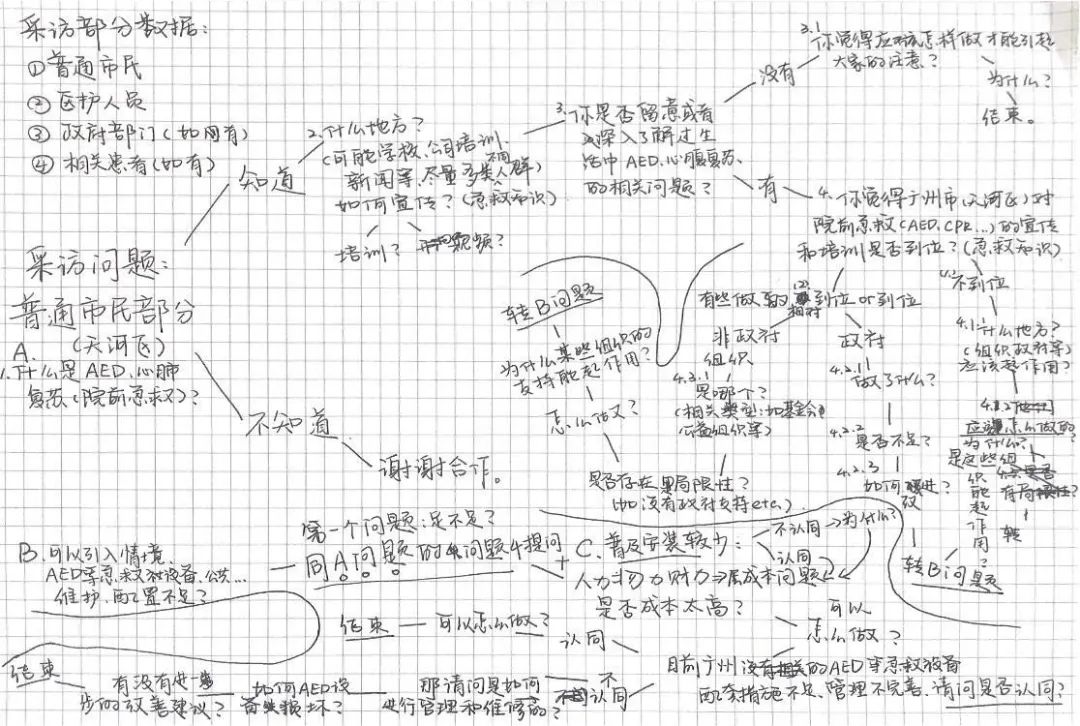 采访部分数据：
① 普通市民
② 医护人员
③ 政府部门（如周有）
④ 相关患者（如有）
采访问题：
普通市民部分
（天河区）
A.
1.什么是AED、心肺
复苏（院前急救）？
知道
不知道
谢谢合作。
2.什么地方？
（可能学校、公司培训、
新闻等，尽量多类不同人群）
如何宣传？（急救知识）
培训？
视频？
3.你是否留意或者
深入了解过生
活中AED、心腹复苏、
的相关问题？
没有
3.1
你觉得应该怎样做才能引起
大家的注意？
为什么？
结束。
有
4.你觉得广州市（天河区）对
院前急救（AED、CPR...）的宣传
和培训是否到位？（急救知识）
有些做到相对到位or到位
非政府
组织
4.3.1
是哪个？
（相关类型：如基金会
公益组织等）
政府
4.2.1
做了什么？
4.2.2
是否不足？
4.2.3
如何改进？
转B问题
不到位
4.1.1什么地方？
（组织政府等）
应该起作用？
4.1.2
应该怎么做的
为什么
是这些组
织能起作用？
转
转B问题
为什么某些组织的
支持能起作用？
怎么做又？
是否存在局限性？
（如没有政府支持etc.）
B.可以引入情境、
AED等急救对设备、公共...
维护、配置不足？
第一个问题：足不足？
同A问题的问题4提问
+
C.普及安装较少：
不认同→为什么？
认同
人力物力财力⇒成本问题
是否成本太高？
可以
怎么做？
目前广州没有相关的AED等急救设备
配套措施不足、管理不完善，请问是否认同？
认同
可以怎么做？
结束
不认同
那请问是如何
进行管理和维修的？
如何AED设
备损坏？
有没有进一
步的改善建议？
结束